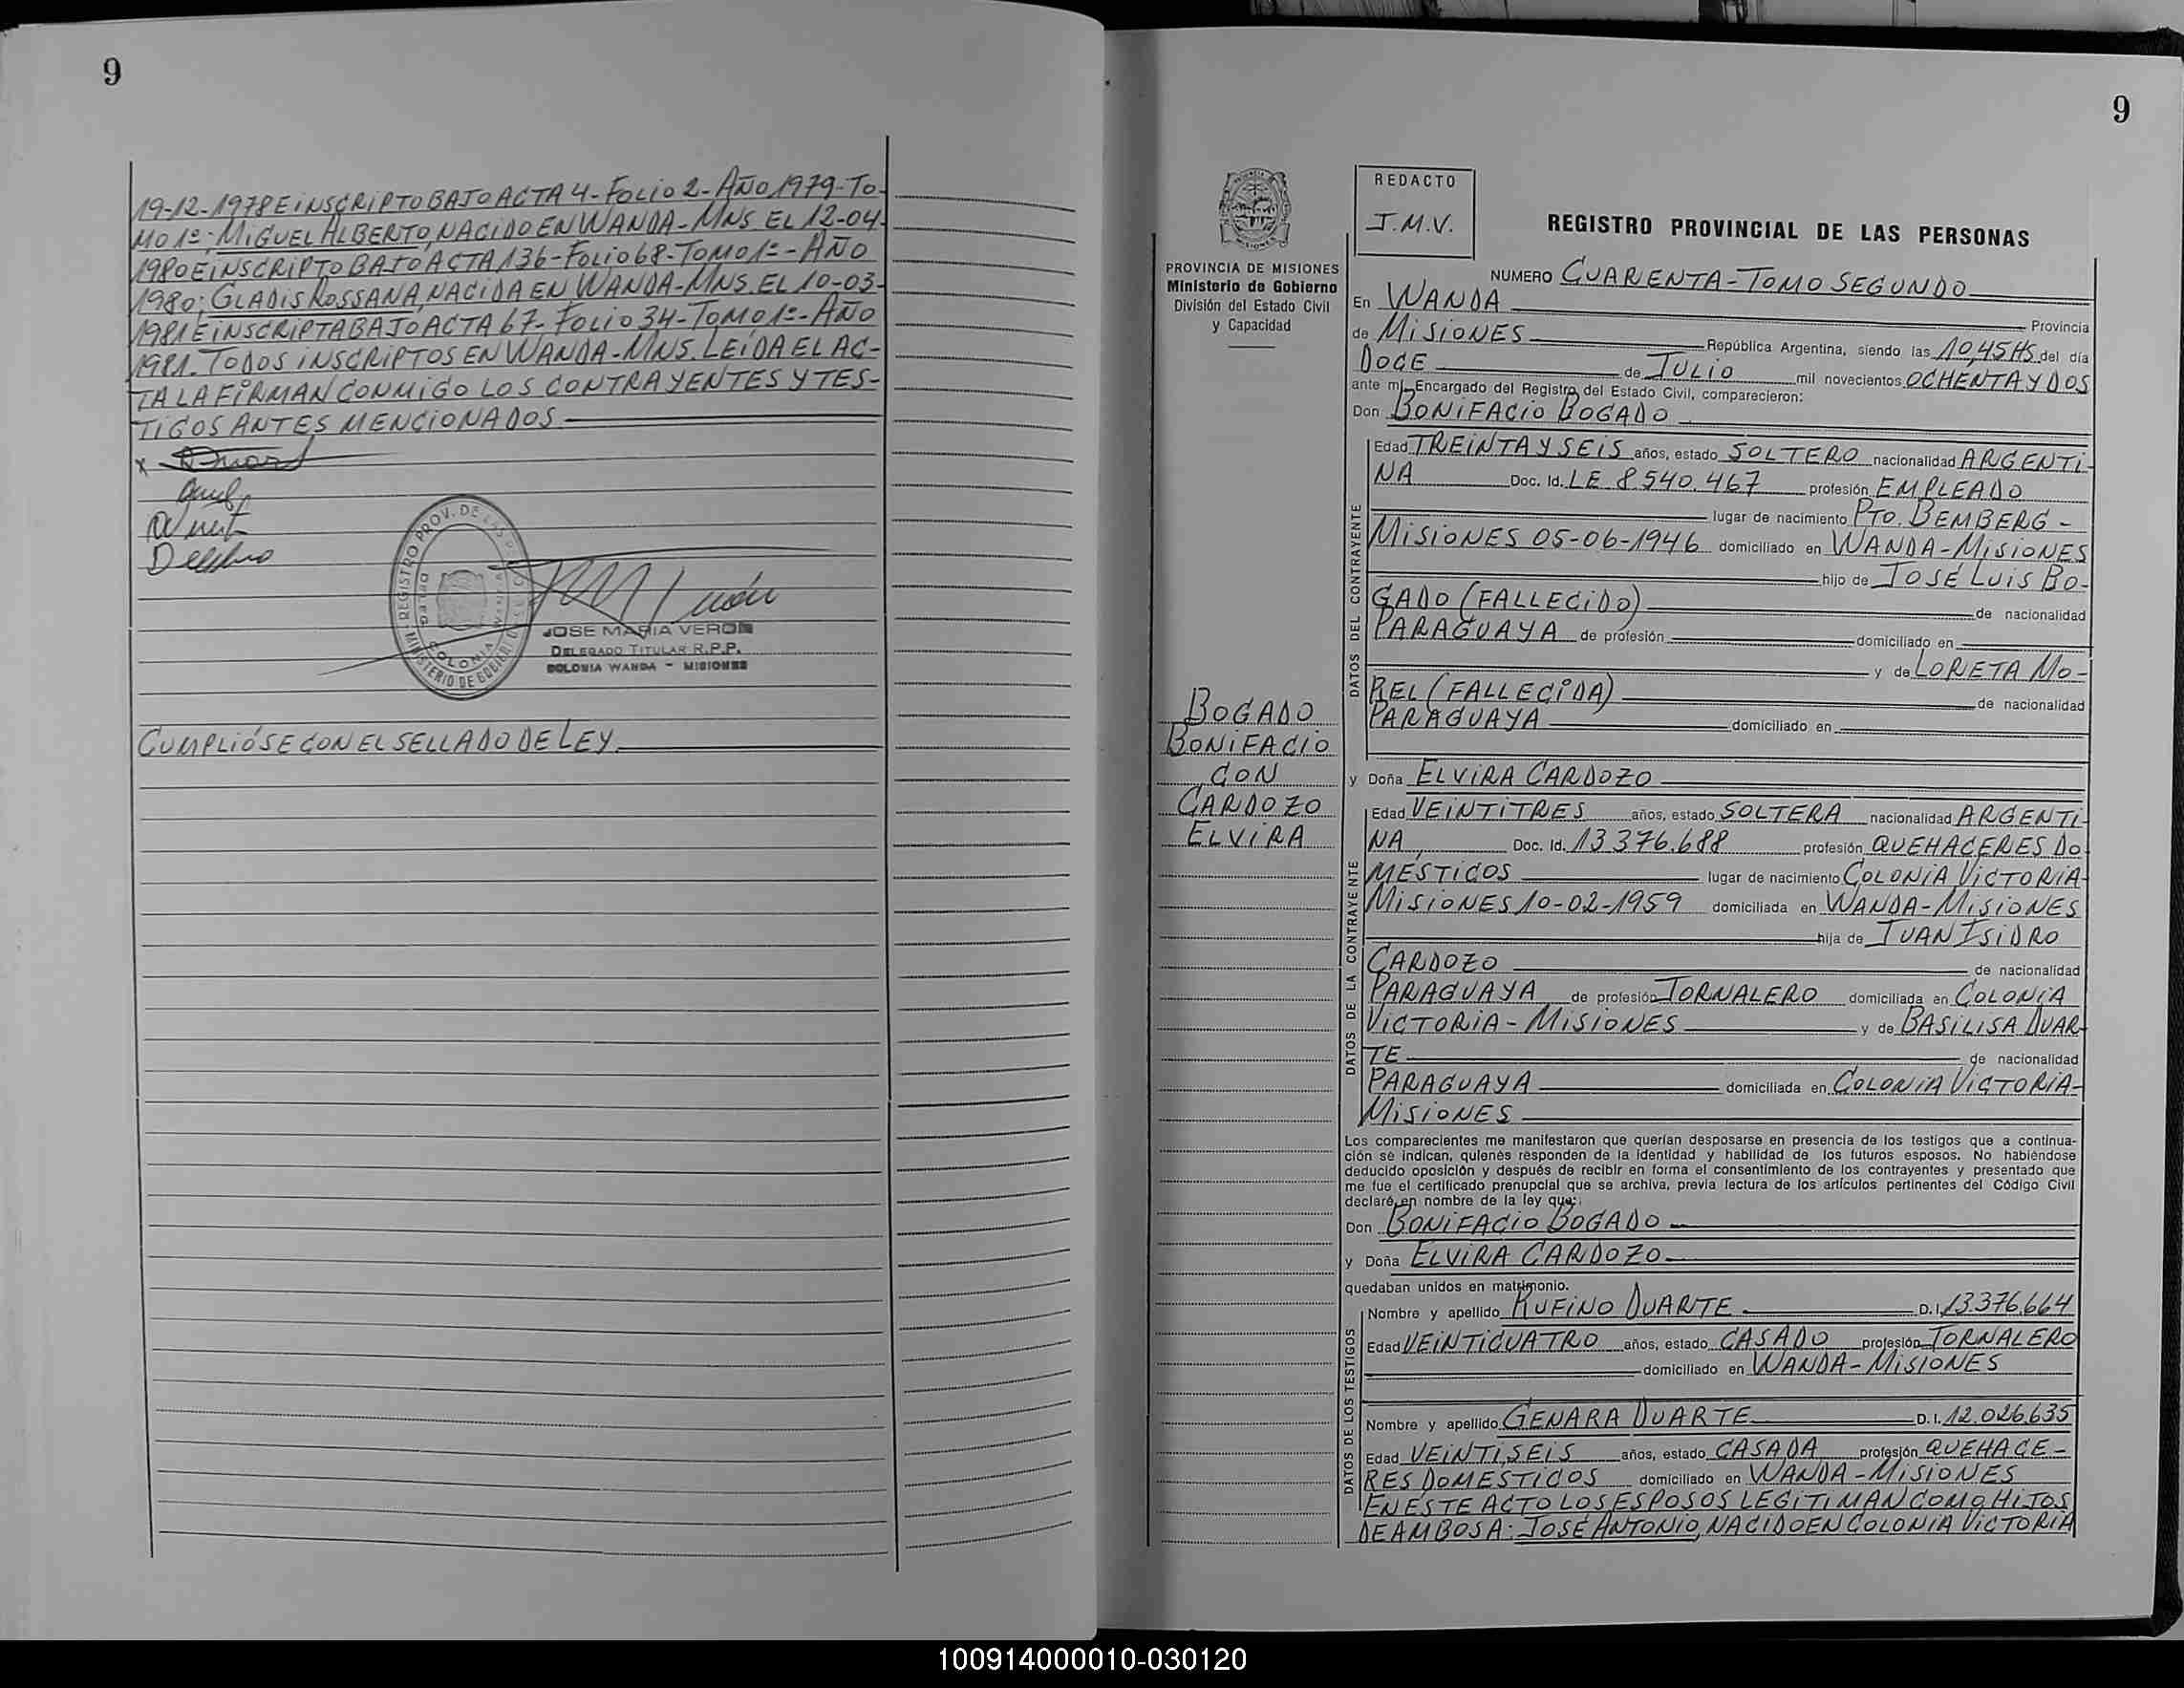 9
19-12-1978 E INSCRIPTO BAJO ACTA 4-FOLIO 2-AÑO 1979-TO-
MO 1º; MIGUEL ALBERTO, NACIDO EN WANDA-MNS EL 12-04-
1980 E INSCRIPTO BAJO ACTA 136-FOLIO 68-TOMO 1º-AÑO
1980; GLADIS ROSSANA, NACIDA EN WANDA-MNS. EL 10-03-
1981 E INSCRIPTA BAJO ACTA 67-FOLIO 34-TOMO 1º-AÑO
1981. TODOS INSCRIPTOS EN WANDA-MNS. LEÍDA EL AC-
TA LA FIRMAN CONMIGO LOS CONTRAYENTES Y TES-
TIGOS ANTES MENCIONADOS
x
REGISTRO PROV. DE LAS
MINISTERIO DE GOBIERNO
COLONIA WANDA
JOSE MARIA VERON
DELEGADO TITULAR R.P.P.
COLONIA WANDA - MISIONES
CUMPLIÓSE CON EL SELLADO DE LEY.
9
PROVINCIA DE MISIONES
Ministerio de Gobierno
División del Estado Civil
y Capacidad
BOGADO
BONIFACIO
CON
CARDOZO
ELVIRA
REDACTO
J.M.V.
REGISTRO PROVINCIAL DE LAS PERSONAS
NUMERO CUARENTA-TOMO SEGUNDO
En WANDA Provincia
de MISIONES República Argentina, siendo las 10,45 HS. del día
DOCE de JULIO mil novecientos OCHENTA Y DOS
ante mí, Encargado del Registro del Estado Civil, comparecieron:
Don BONIFACIO BOGADO
DATOS DEL CONTRAYENTE
Edad TREINTA Y SEIS años, estado SOLTERO nacionalidad ARGENTI-
NA Doc. Id. LE 8.540.467 profesión EMPLEADO
lugar de nacimiento PTO. BEMBERG-
MISIONES 05-06-1946 domiciliado en WANDA-MISIONES
hijo de JOSÉ LUIS BO-
GADO (FALLECIDO) de nacionalidad
PARAGUAYA de profesión domiciliado en
y de LORETA MO-
REL (FALLECIDA) de nacionalidad
PARAGUAYA domiciliado en
y Doña ELVIRA CARDOZO
DATOS DE LA CONTRAYENTE
Edad VEINTITRES años, estado SOLTERA nacionalidad ARGENTI-
NA, Doc. Id. 13.376.688 profesión QUEHACERES DO-
MÉSTICOS lugar de nacimiento COLONIA VICTORIA-
MISIONES 10-02-1959 domiciliada en WANDA-MISIONES
hija de JUAN ISIDRO
CARDOZO de nacionalidad
PARAGUAYA de profesión JORNALERO domiciliada en COLONIA
VICTORIA-MISIONES y de BASILISA DUAR-
TE de nacionalidad
PARAGUAYA domiciliada en COLONIA VICTORIA-
MISIONES
Los comparecientes me manifestaron que querían desposarse en presencia de los testigos que a continua-
ción se indican, quienes responden de la identidad y habilidad de los futuros esposos. No habiéndose
deducido oposición y después de recibir en forma el consentimiento de los contrayentes y presentado que
me fue el certificado prenupcial que se archiva, previa lectura de los artículos pertinentes del Código Civil
declaré en nombre de la ley que:
Don BONIFACIO BOGADO
y Doña ELVIRA CARDOZO
quedaban unidos en matrimonio.
DATOS DE LOS TESTIGOS
Nombre y apellido RUFINO DUARTE D.I. 13.376.664
Edad VEINTICUATRO años, estado CASADO profesión JORNALERO
domiciliado en WANDA-MISIONES
Nombre y apellido GENARA DUARTE D.I. 12.026.635
Edad VEINTISEIS años, estado CASADA profesión QUEHACE-
RES DOMESTICOS domiciliado en WANDA-MISIONES
EN ESTE ACTO LOS ESPOSOS LEGITIMAN COMO HIJOS
DE AMBOS A: JOSÉ ANTONIO, NACIDO EN COLONIA VICTORIA
100914000010-030120